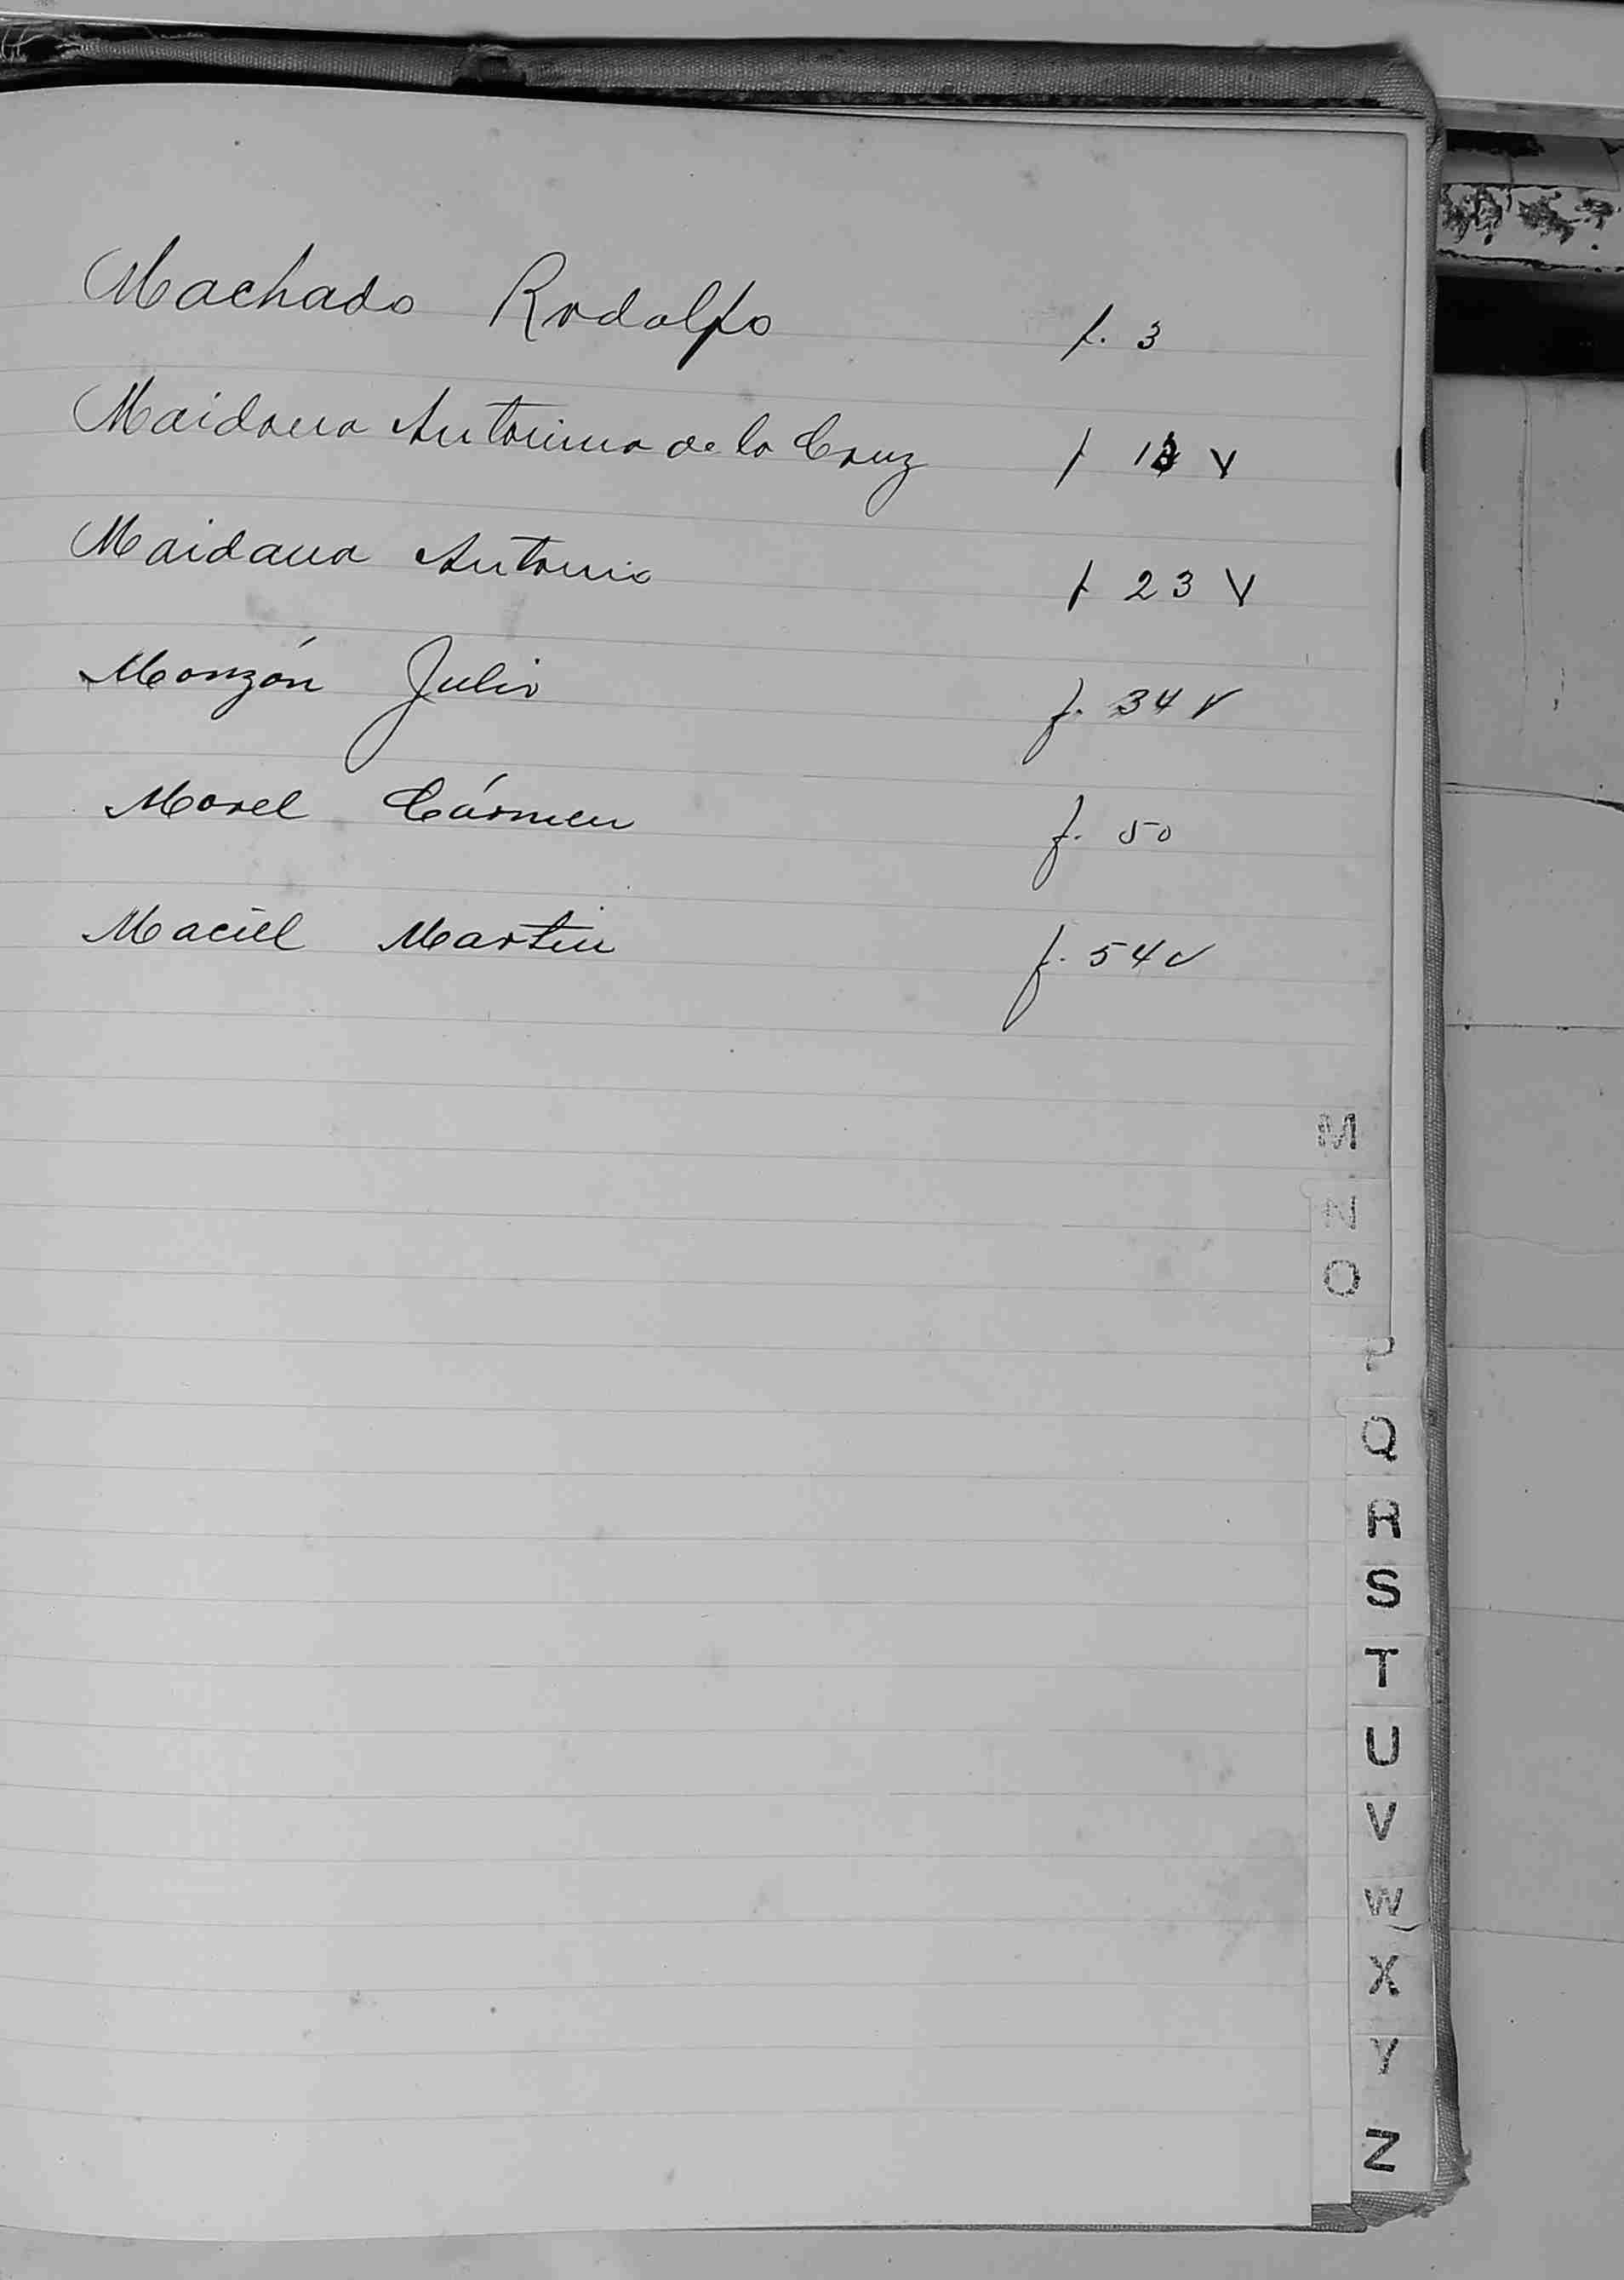 Machado Rodolfo f. 3
Maidana Antonina de la Cruz f 13 v
Maidana Antonio f 23 V
Monzón Julio f. 34 v
Morel Cármen f. 50
Maciel Martin f. 54 v
M
N
O
P
Q
R
S
T
U
V
W
X
Y
Z